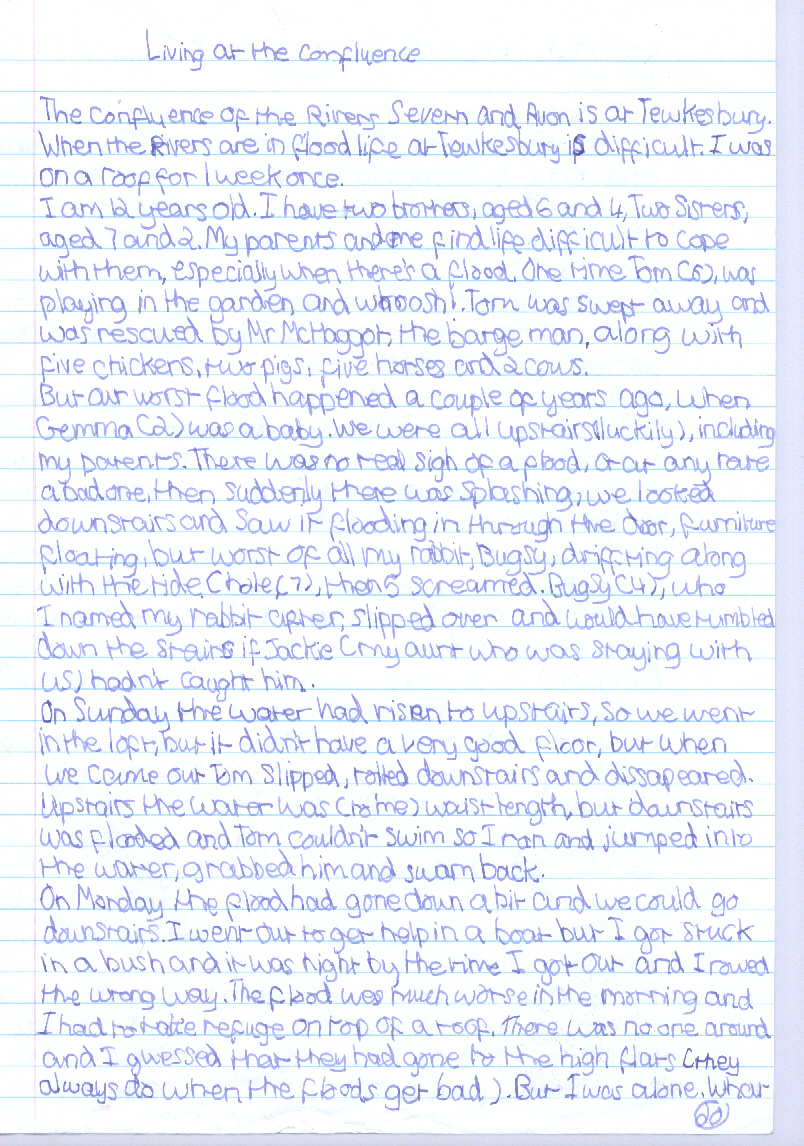 Living at the confluence
The confluence of the Rivers Severn and Avon is at Tewkesbury.
When the Rivers are in flood life at Tewkesbury is difficult. I was
on a roof for 1 week once.
I am 12 years old. I have two brothers, aged 6 and 4, Two Sisters,
aged 7 and 2. My parents and me find life difficult to cope
with them, especially when there's a flood. One time Tom (6), was
playing in the garden and whoosh!. Tom was swept away and
was rescued by Mr McHaggot, the barge man, along with
five chickens, two pigs, five horses and 2 cows.
But our worst flood happened a couple of years ago, when
Gemma (2) was a baby. We were all upstairs (luckily), including
my parents. There was no real sigh of a flood, or at any rate
a bad one, then suddenly there was splashing, we looked
downstairs and saw it flooding in through the door, furniture
floating, but worst of all my rabbit, Bugsy, driffting along
with the tide. Chole (7), then 5 screamed. Bugsy (4), who
I named my rabbit after, slipped over and would have tumbled
down the stairs if Jackie (my aunt who was staying with
us) hadn't caught him.
On Sunday the water had risen to upstairs, so we went
in the loft, but it didn't have a very good floor, but when
we came out Tom slipped, rolled downstairs and dissapeared.
Upstairs the water was (to me) waist length, but downstairs
was flooded and Tom couldn't swim so I ran and jumped into
the water, grabbed him and swam back.
On Monday the flood had gone down a bit and we could go
downstairs. I went out to get help in a boat but I got stuck
in a bush and it was night by the time I got out and I rowed
the wrong way. The flood was much worse in the morning and
I had to take refuge on top of a roof. There was no one around
and I guessed that they had gone to the high flats (they
always do when the floods get bad). But I was alone, what
60